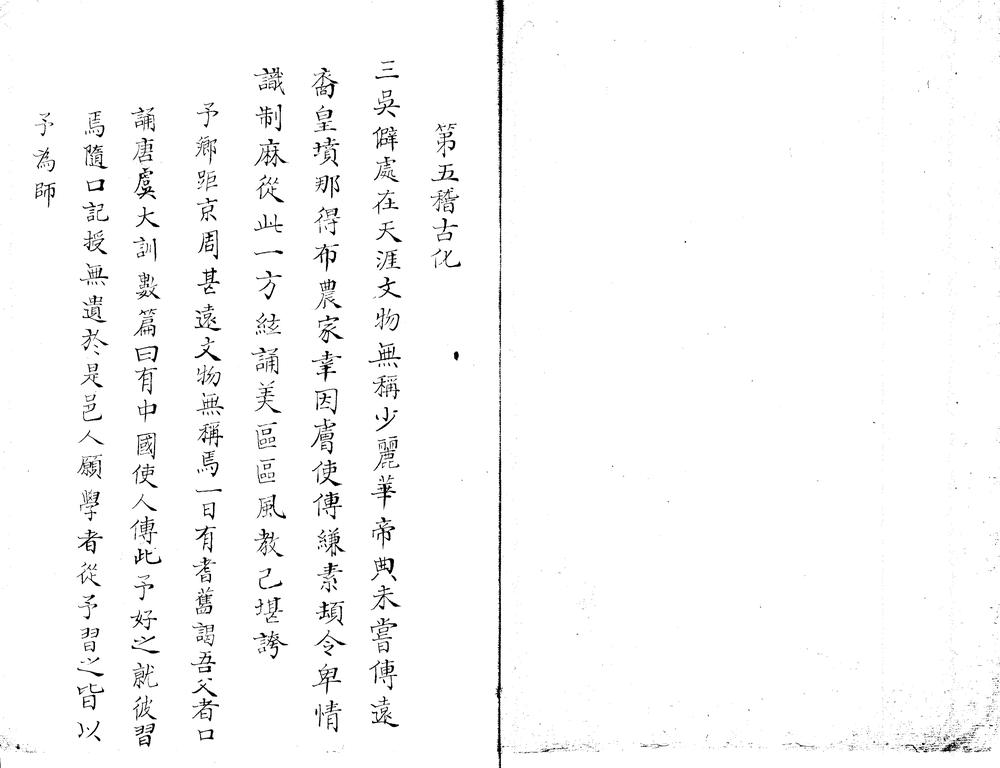 第五稽古化
三吳僻處在天涯文物無稱少麗華帝典未嘗傳遠
裔皇墳那得布農家幸因膚使傳縑素頓令卑情
識制麻從此一方絃誦美區區風教已堪誇
予鄉距京周甚遠文物無稱焉一日有耆舊謁吾父者口
誦唐虞大訓數篇曰有中國使人傳此予好之就彼習
焉隨口記授無遺於是邑人願學者從予習之皆以
予為師